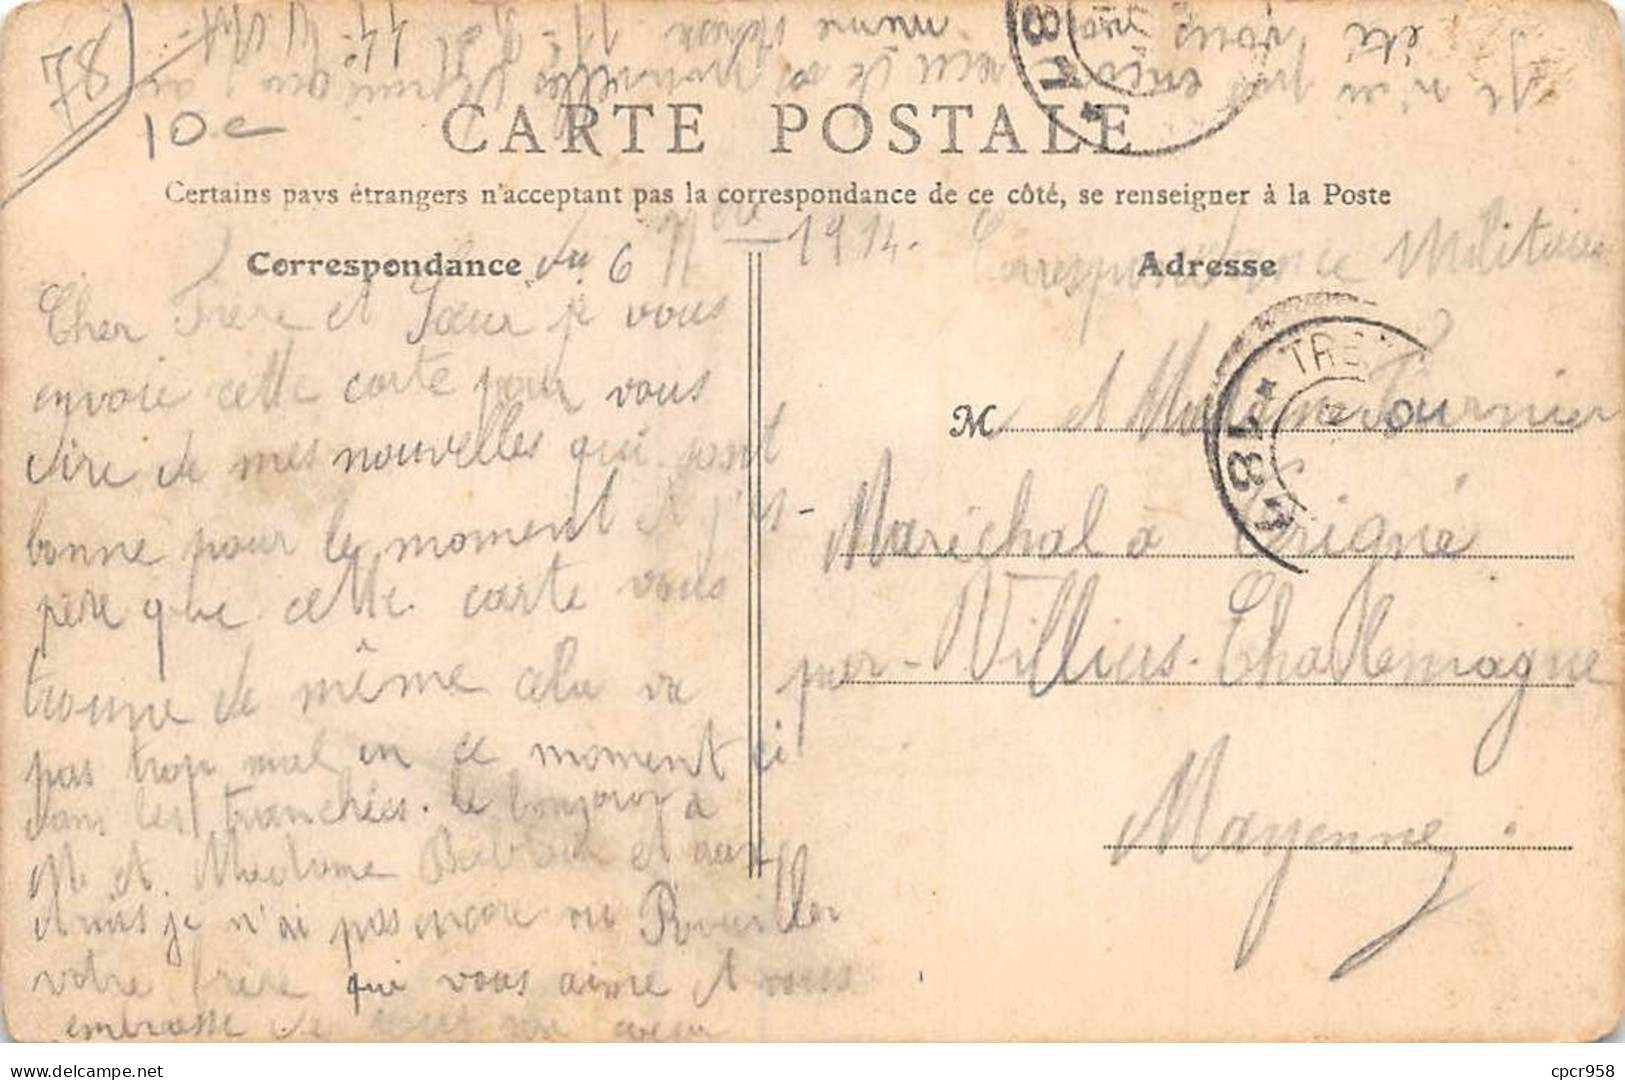 87
10c
Je n'ai pas reçu de vos nouvelles depuis
été vous
CARTE POSTALE
Certains pays étrangers n'acceptant pas la correspondance de ce côté, se renseigner à la Poste
Correspondance du 6 9bre 1914.
Cher Frère et Sœur je vous
envoie cette carte pour vous
dire de mes nouvelles qui sont
bonne pour le moment et j'es-
père que cette carte vous
trouve de même cela va
pas trop mal en ce moment ci
dans les tranchées. le bonjour à
M et Madame et aux
Amis je n'ai pas encore vu Rouiller
votre frère qui vous aime et vous
embrasse de tout son cœur
Correspondance Militaire
Adresse
M et Madame Fournier
Maréchal à Crigné
par Villiers-Charlemagne
Mayenne.
TRE
* 184
184 *
cpcr958